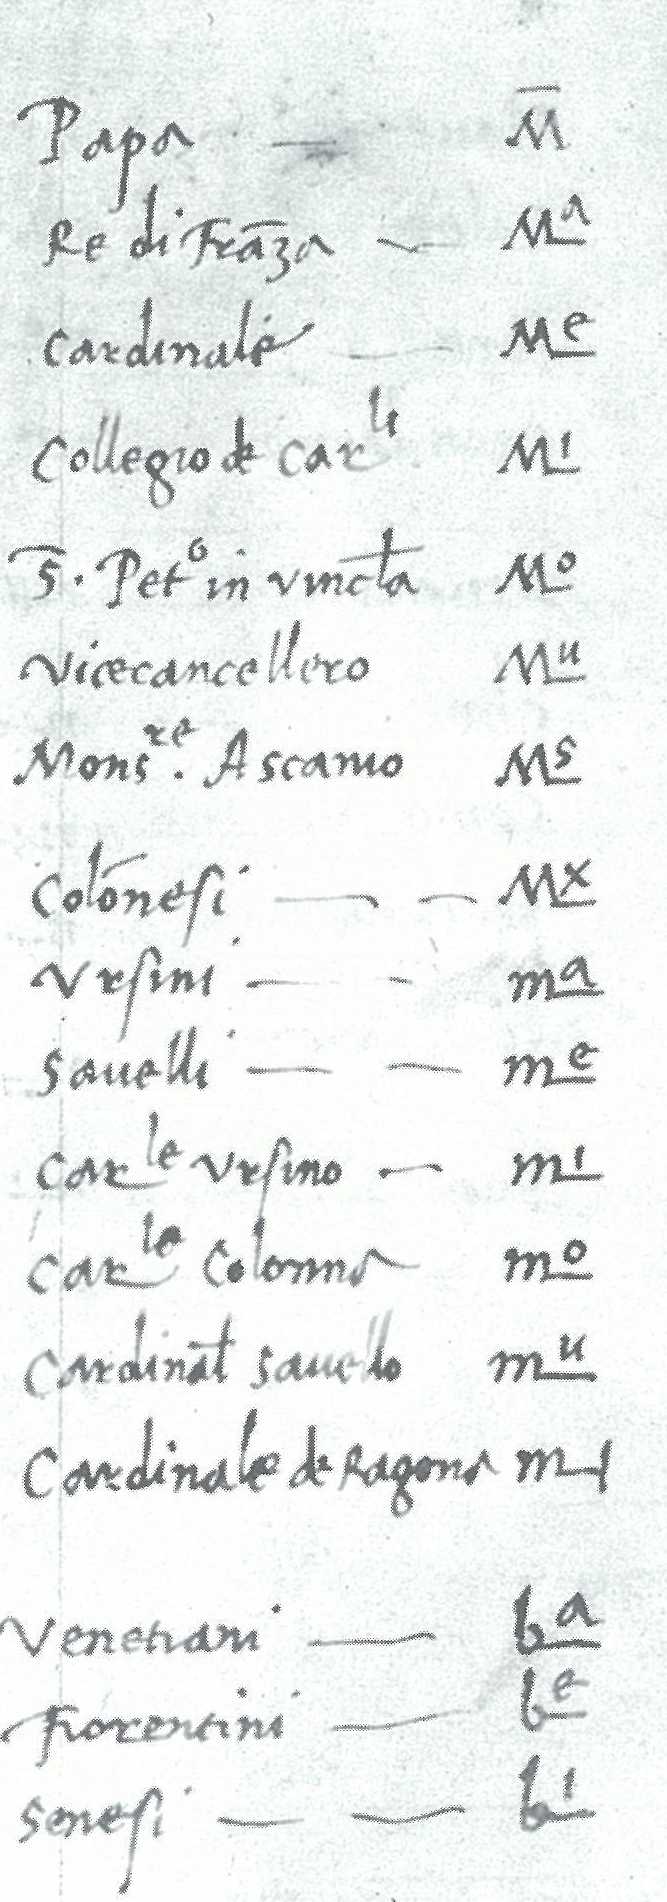 Papa — M̄
Re di Frāza — Mᵃ
Cardinale — Mᵉ
Collegio de Carˡⁱ Mⁱ
S̄. Petᵒ in vincła Mᵒ
Vicecancellero Mᵘ
Monsʳᵉ. Ascanio Mˢ
Colōnesi — — Mˣ
Vrsini — - mᵃ
Sauelli — — mᵉ
Carˡᵉ Vrsino — mⁱ
Carˡᵉ Colonna mᵒ
Cardinał Sauello mᵘ
Cardinale de Ragona
Venetiani — bᵃ
Fiorentini — bᵉ
Senesi — — bⁱ